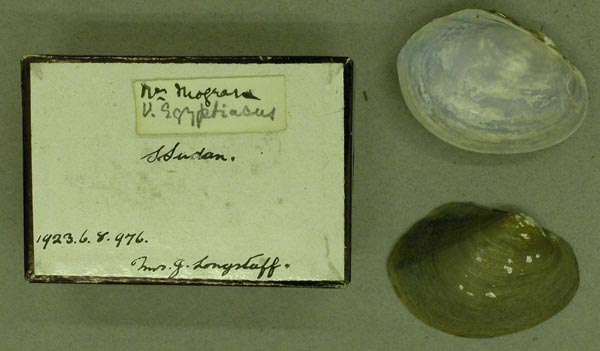 Nr. Mograra
U. Egyptiacus
S. Sudan.
1923.6.8.976.
Mrs. J. Longstaff.